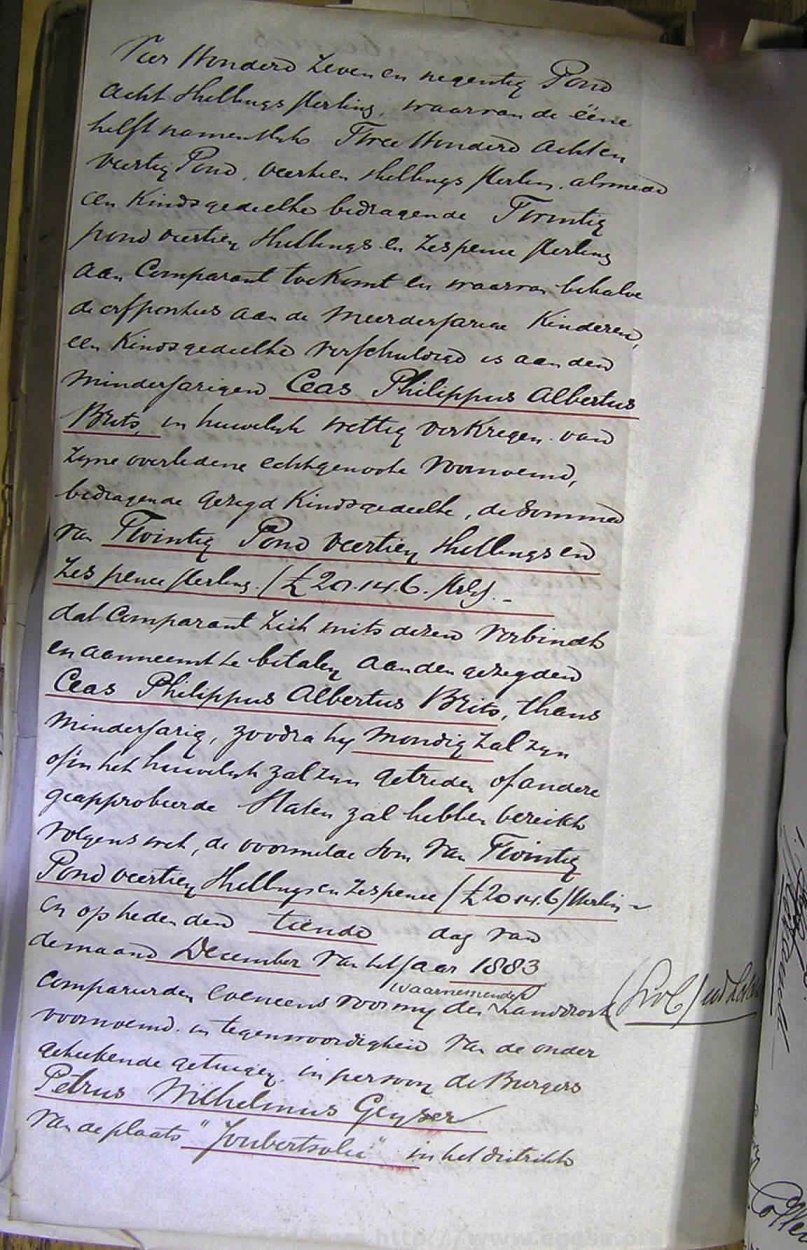 Vier Honderd Zeven en negentig Pond
Acht Shellings sterling, waarvan de eene
helft namentlyk Twee Honderd Achten
veertig Pond, veertien shellings sterlin. alsmede
een Kinds gedeelte bedragende Twintig
pond veertien Shellings en Zes pence sterling
aan Comparant toekomt en waarvan behalve
de erfporties aan de meerderjarige Kinderen,
een Kinds gedeelte verschuldigd is aan den
minderjarigen Ceas Philippus Albertus
Brits, in huwelyk wettig verkregen van
zyne overledene echtgenoote voornoemd,
bedragende gezegd Kindsgedeelte, de Somma
van Twintig Pond veertien shellings en
Zes pence sterling. (£20.14.6. strlg. -
dat Comparant zich mits dezen verbindt
en aanneemt te betalen aan den gezegden
Ceas Philippus Albertus Brits, thans
minderjarig, zoodra hy mondig zal zyn
of in het huwelyk zal zyn getreden of andere
geapprobeerde Staten zal hebben bereikt
volgens wet, de voormelde som van Twintig
Pond veertien Shellings en Zes pence (£20.14.6) Sterlin -
en op heden den tiende dag van
de maand December van het Jaar 1883
waarnemende
compareerden eveneens voor my den Landdrost
voornoemd in tegenwoordigheid van de onder
geteekende getuigen, in persoon de Burgers
Petrus Wilhelmus Geyser
van de plaats "Joubertsvlei" in het district